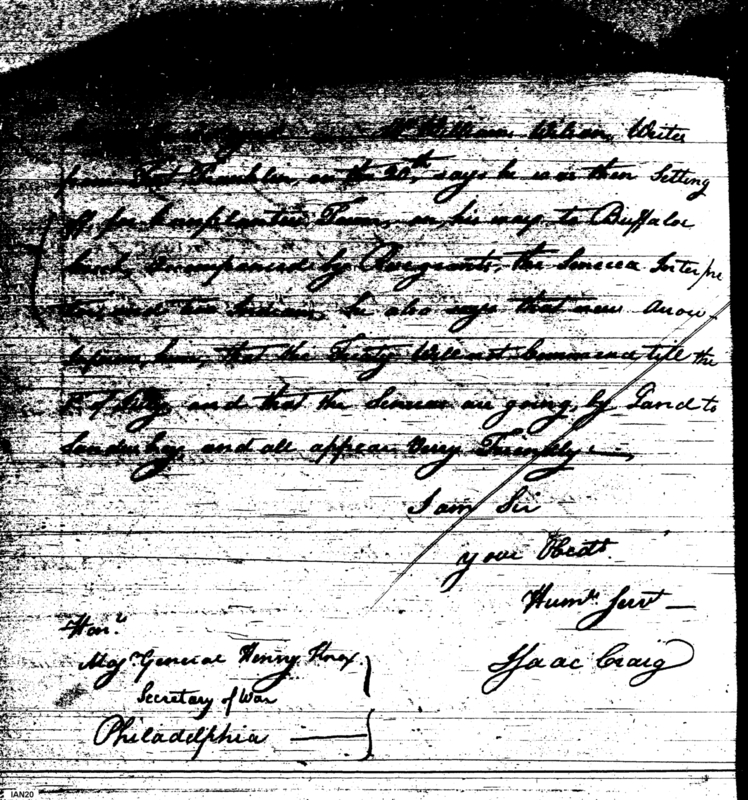 Mr William Wilson, Writes
from Fort Franklin, on the 20th, says he was then Setting
off for Cornplanters Town, on his way to Buffaloe
accompanied by the Seneca Interpre
ters and two Indians, he also says that new
inform him, that the Treaty Will not Commence till the
1st of July, and that the Senecas are going by Land to
Sandusky, and all appear Very Friendly —
I am Sir
your Obedt.
Humle Servt —
Isaac Craig
Honl.
Majr General Henry Knox
Secretary of War
Philadelphia —
IAN20